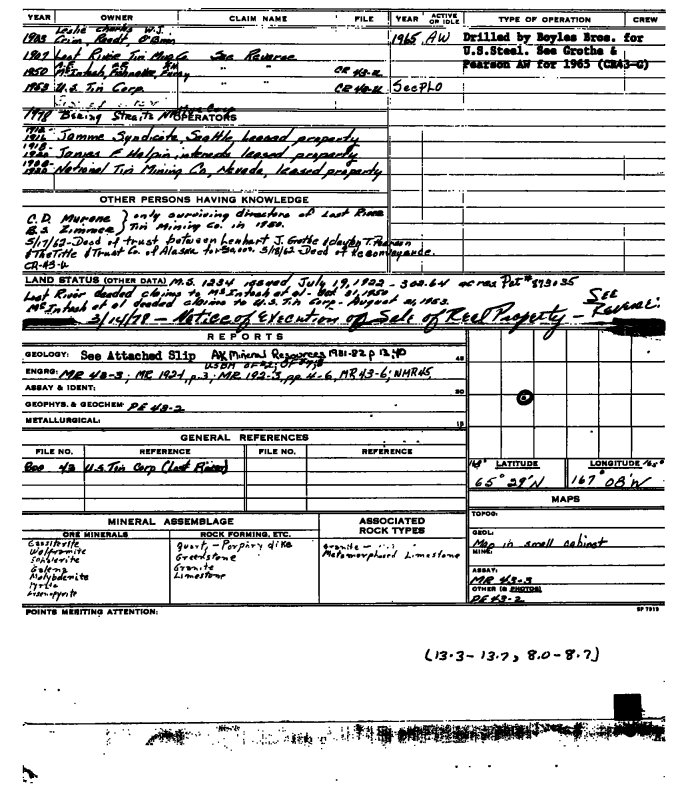 YEAR OWNER CLAIM NAME FILE YEAR ACTIVE OR IDLE TYPE OF OPERATION CREW
Leslie Charles W.J.
1903 Crim, Randt O'Brien 1965 AW Drilled by Boyles Bros. for
U.S.Steel. See Grothe &
1907 Lost River Tin Mng Co See Reverse
Pearson AW for 1965 (CR43-G)
1950 McIntosh, " " CR 43-
1953 U.S. Tin Corp. " " See PLO
1978 Bering Straits Native Corp
OPERATORS
Jamme Syndicate, Seattle, leased property
1918-
1920 James F Halpin, interests leased property
National Tin Mining Co, Nevada, leased property
OTHER PERSONS HAVING KNOWLEDGE
C.D. Murane } only surviving directors of Lost River
B.S. Zimmer } Tin Mining Co. in 1950.
5/17/62-Deed of trust between Lenhart J. Grothe & Clayton T. Pearson
& The Title & Trust Co. of Alaska for 5/18/62-Deed of Reconveyance.
CR-43-
LAND STATUS (OTHER DATA) M.S. 1234 issued July 19, 1922 - 302.64 acres Pat# 873035
Lost River deeded claims to McIntosh et al - Oct 31, 1950
McIntosh et al deeded claims to U.S. Tin Corp - August 21, 1953.
See Reverse.
3/14/78 - Notice of Execution of Sale of Real Property -
REPORTS
GEOLOGY: See Attached Slip AK Mineral Resources 1981-82 p 12, 40
ENGRG: MR 43-3; MR 192-1, p.3; MR 192-3, pp 4-6, MR 43-6; NMR45
ASSAY & IDENT:
GEOPHYS. & GEOCHEM: PE 43-2
METALLURGICAL:
GENERAL REFERENCES
FILE NO. REFERENCE FILE NO. REFERENCE
U.S. Tin Corp (Lost River)
LATITUDE LONGITUDE
65° 29'N 167° 08'W
MAPS
TOPOG:
GEOL:
Map in small cabinet
MINE:
ASSAY:
MR 43-3
OTHER (& PHOTOS)
PE 43-2
MINERAL ASSEMBLAGE ASSOCIATED ROCK TYPES
ORE MINERALS ROCK FORMING, ETC.
Cassiterite Quartz - Porphry dike Granite -
Wolframite Greenstone Metamorphosed Limestone
Scheelite Granite
Galena Limestone
Molybdenite
Pyrite
Arsenopyrite
POINTS MERITING ATTENTION:
SP 7919
(13.3- 13.7, 8.0 - 8.7)